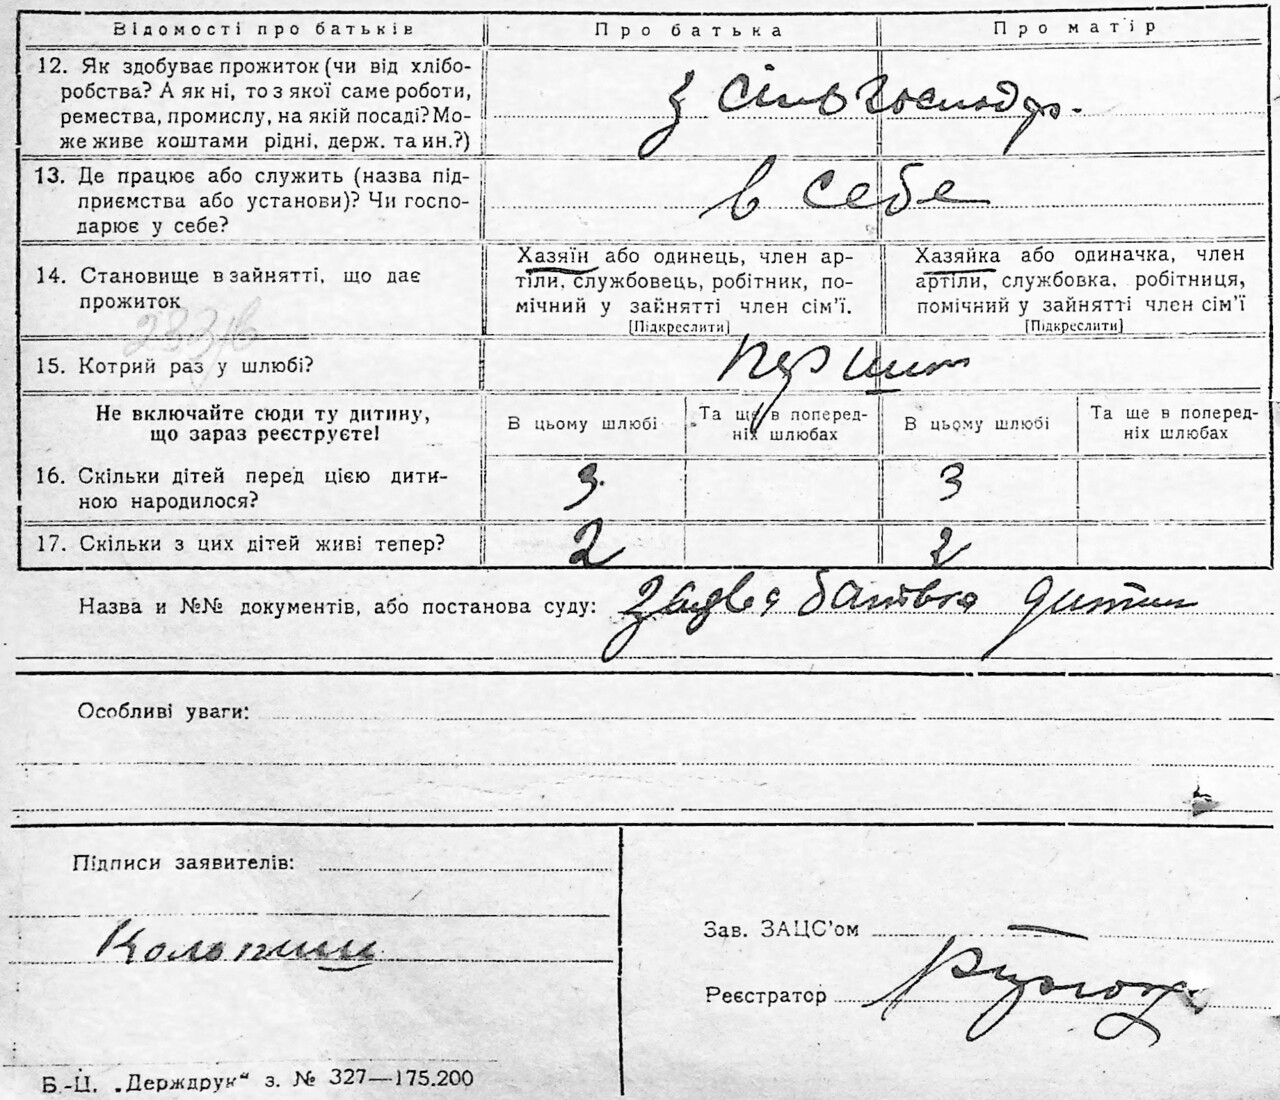 Відомості про батьків Про батька Про матір
12. Як здобуває прожиток (чи від хлібо-
робства? А як ні, то з якої саме роботи,
ремества, промислу, на якій посаді? Мо-
же живе коштами рідні, держ. та ин.?)
з сільгосподр.
13. Де працює або служить (назва під-
приємства або установи)? Чи госпо-
дарює у себе?
в себе
14. Становище в зайнятті, що дає
прожиток
Хазяїн або одинець, член ар-
тіли, службовець, робітник, по-
мічний у зайнятті член сім'ї.
[Підкреслити]
Хазяйка або одиначка, член
артіли, службовка, робітниця,
помічний у зайнятті член сім'ї
[Підкреслити]
15. Котрий раз у шлюбі?
перший
Не включайте сюди ту дитину,
що зараз реєструєте!
В цьому шлюбі
Та ще в поперед-
ніх шлюбах
В цьому шлюбі
Та ще в поперед-
ніх шлюбах
16. Скільки дітей перед цією дити-
ною народилося?
3 3
17. Скільки з цих дітей живі тепер? 2 2
Назва и №№ документів, або постанова суду: заява батька дитини
Особливі уваги:
Підписи заявителів:
Зав. ЗАЦС'ом
Реєстратор
Б.-Ц. „Держдрук" з. № 327—175.200